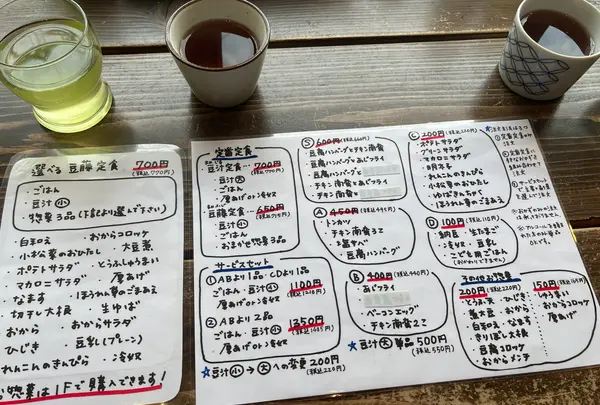 選べる 豆藤定食 700円
(税込770円)
・ごはん
・豆汁 小
・惣菜3品(下記より選んで下さい)
・白和え
・おからコロッケ
・小松菜のおひたし
・大豆煮
・ポテトサラダ
・とうふしゅうまい
・マカロニサラダ
・唐あげ
・なます
・ほうれん草のごまあえ
・切干し大根
・生ゆば
・おから
・おからサラダ
・ひじき
・豆乳(プレーン)
・れんこんのきんぴら
・冷奴
惣菜は1Fで購入できます!
定番定食
豆汁定食 700円
(税込770円)
・豆汁 大
・ごはん
・唐あげ or 冷奴
豆腐定食 650円
・豆汁 小
・ごはん
・おまかせ惣菜3品
サービスセット
① ABより1品・CDより1品
・ごはん・豆汁 小
・唐あげ or 冷奴
1100円
(税込1210円)
② ABより2品
・ごはん・豆汁 小
・唐あげ or 冷奴
1350円
(税込1485円)
☆豆汁 小 → 大 への変更 200円
(税込220円)
S 600円(税込660円)
・豆腐ハンバーグとチキン南蛮
・豆腐ハンバーグとあじフライ
・豆腐ハンバーグと
・チキン南蛮とあじフライ
・チキン南蛮と
A 450円(税込495円)
・トンカツ
・チキン南蛮3コ
・豆腐ハンバーグ
B 400円(税込440円)
・あじフライ
・ベーコンエッグ
・チキン南蛮2コ
☆豆汁 大 単品 500円
(税込550円)
C 200円(税込220円)
・ポテトサラダ
・グリーンサラダ
・マカロニサラダ
・明太子
・れんこんのきんぴら
・小松菜のおひたし
・ゆばさしみ
・ほうれん草のごまあえ
D 100円(税込110円)
・納豆・生たまご
・冷奴・豆乳
・こども用ごはん
その他お惣菜
200円
(税込220円)
・とうふ天・ひじき
・煮大豆・おから
・白和え・なます
・きりぼし大根
・豆腐コロッケ
・おからメンチ
150円
・しゅうまい
・おからコロッケ
・唐あげ